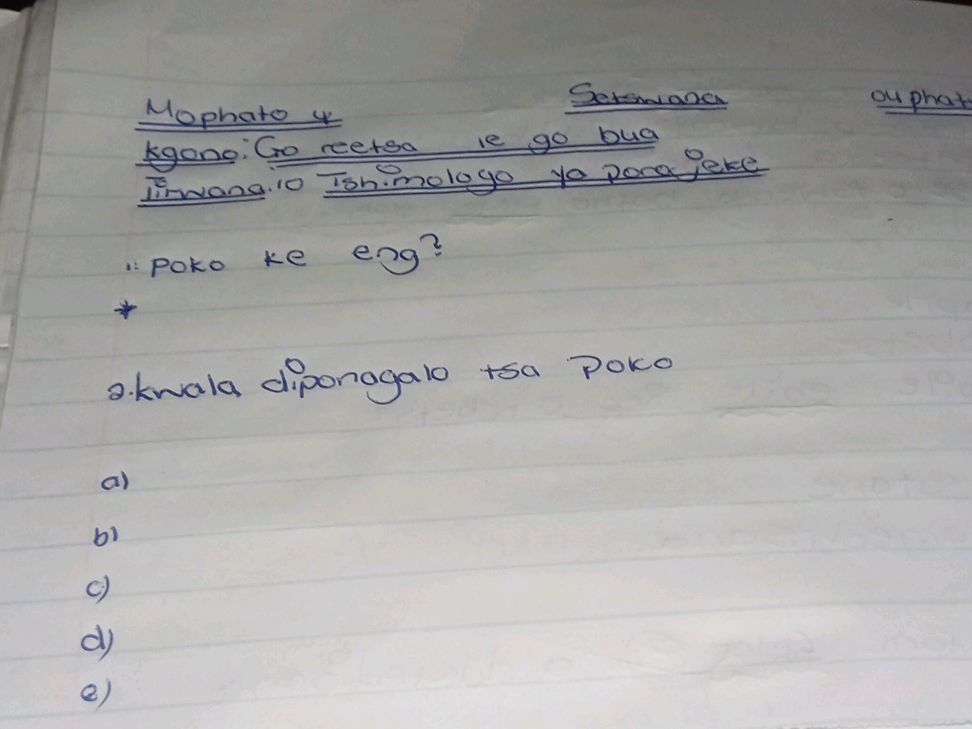 Mophato 4 Setswana ou phat
Kgono: Go reetsa le go bua
Tirwana: 10 Tshimologo ya porojeke
1. poko ke eng?
*
2. kwala diponagalo tsa poko
a)
b)
c)
d)
e)